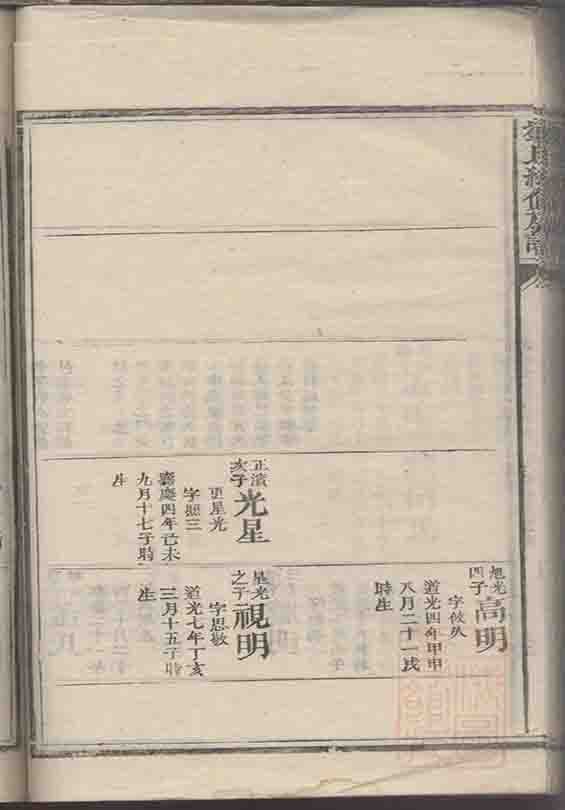 正濱
次子
光星
更星光
字照三
嘉慶四年己未
九月十七子時
生
旭光
四子
高明
道光四年甲申
八月二十一戌
時生
星光
之子
視明
字思敬
道光七年丁亥
三月十五子時
生